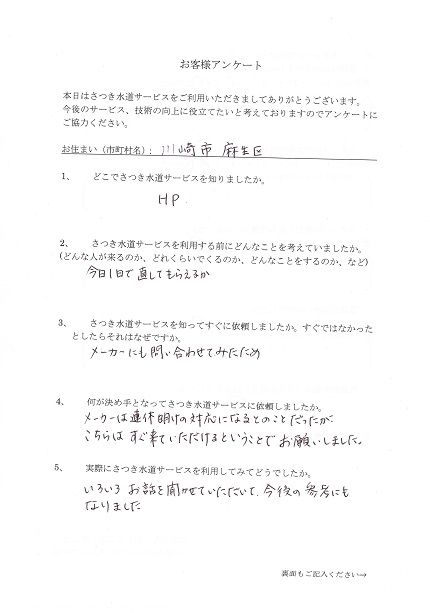 お客様アンケート
本日はさつき水道サービスをご利用いただきましてありがとうございます。
今後のサービス、技術の向上に役立てたいと考えておりますのでアンケートに
ご協力ください。
お住まい（市町村名）：川崎市 麻生区
1、 どこでさつき水道サービスを知りましたか。
HP
2、 さつき水道サービスを利用する前にどんなことを考えていましたか。
（どんな人が来るのか、どれくらいでくるのか、どんなことをするのか、など）
今日1日で直してもらえるか
3、 さつき水道サービスを知ってすぐに依頼しましたか。すぐではなかった
としたらそれはなぜですか。
メーカーにも問い合わせてみたため
4、 何が決め手となってさつき水道サービスに依頼しましたか。
メーカーは連休明けの対応になるとのことだったが、
こちらはすぐ来ていただけるということでお願いしました。
5、 実際にさつき水道サービスを利用してみてどうでしたか。
いろいろお話を聞かせていただいて、今後の参考にも
なりました
裏面もご記入ください→